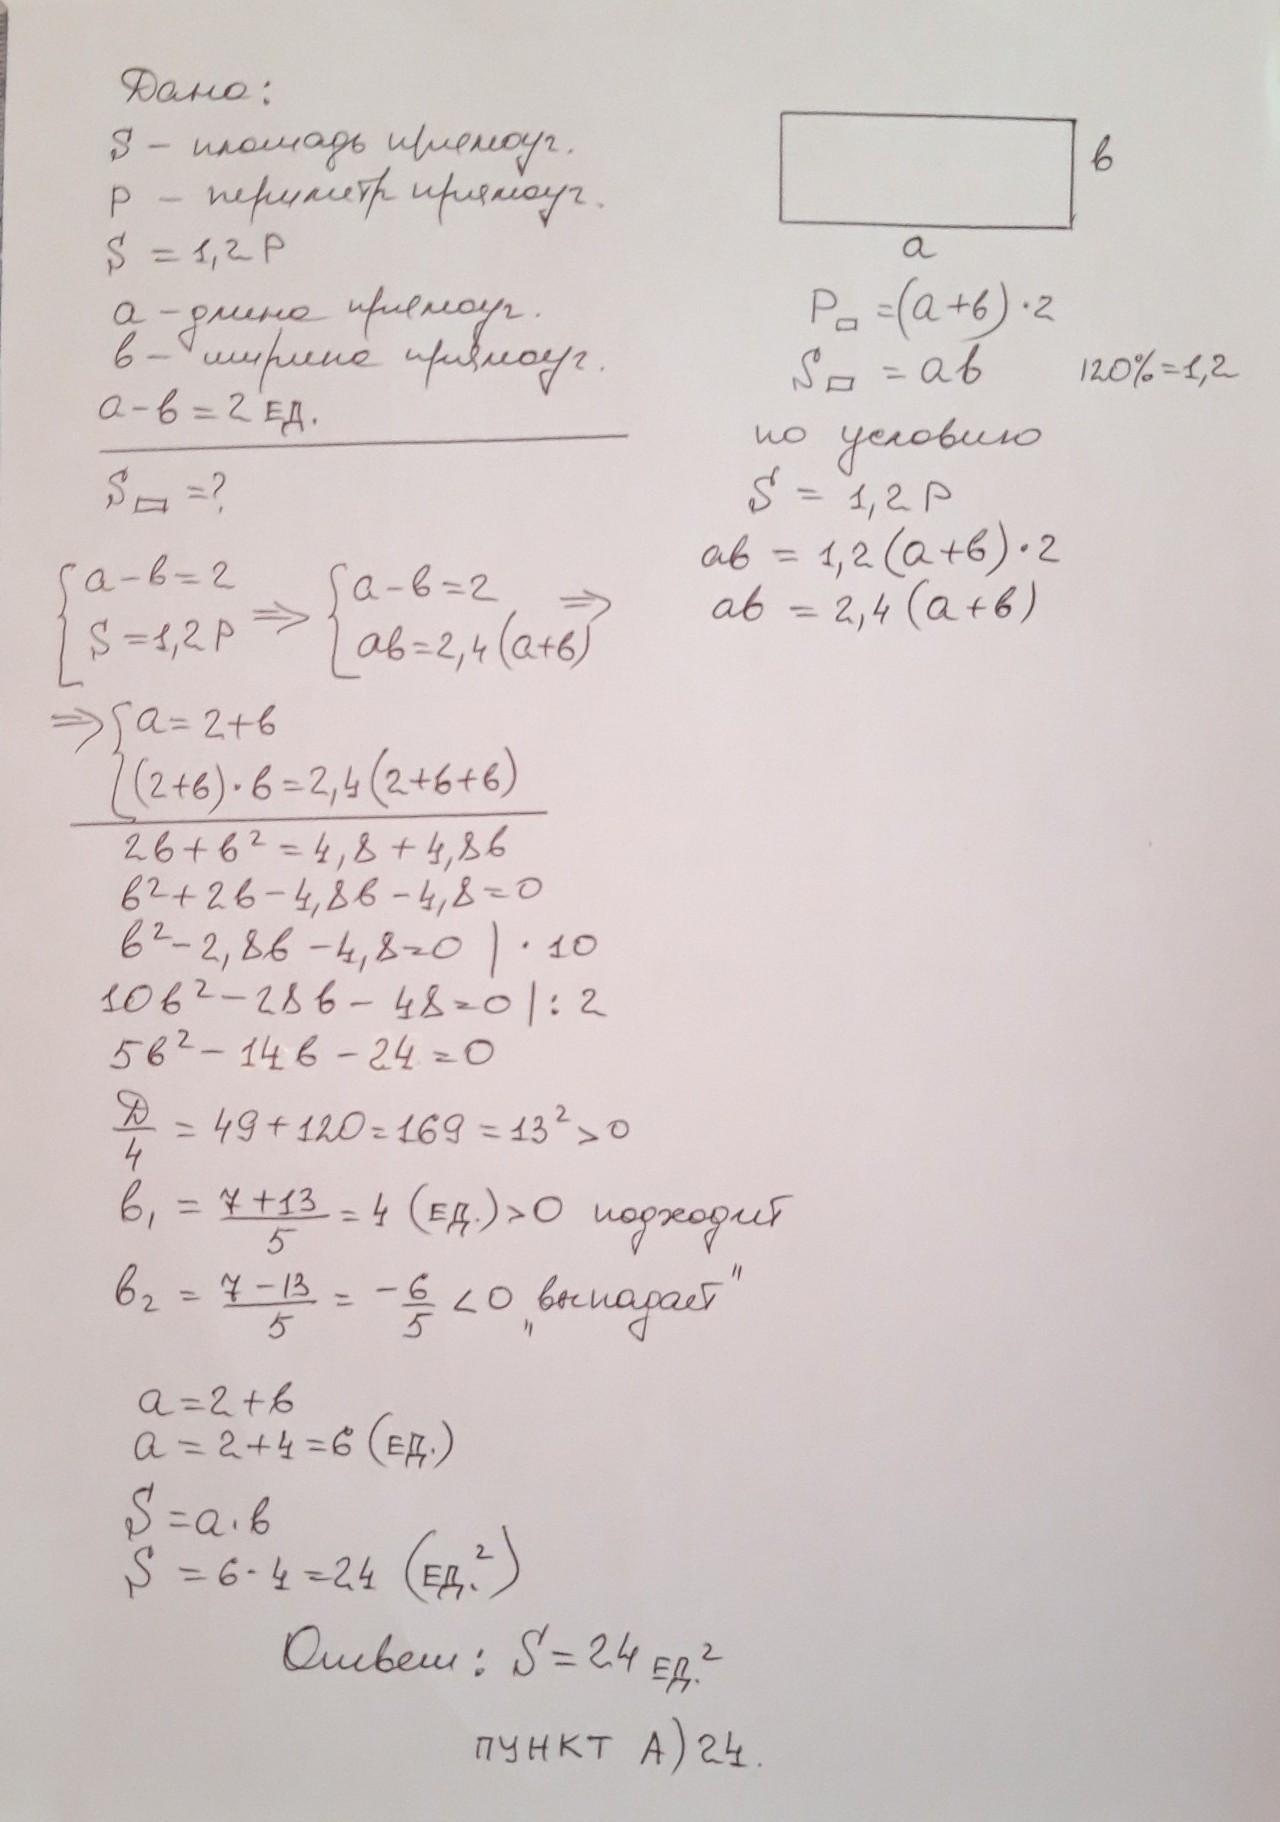 Дано:
S – площадь прямоуг.
P – периметр прямоуг.
S = 1,2 P
a – длина прямоуг.
в – ширина прямоуг.
a – в = 2 ЕД.
S▭ = ?
в
a
P▭ = (a+в)·2
S▭ = aв 120% = 1,2
по условию
S = 1,2 P
aв = 1,2(a+в)·2
aв = 2,4(a+в)
{ a – в = 2 ⇒ { a – в = 2 ⇒
{ S = 1,2 P { aв = 2,4(a+в)
⇒ { a = 2+в
{ (2+в)·в = 2,4(2+в+в)
2в + в² = 4,8 + 4,8в
в² + 2в – 4,8в – 4,8 = 0
в² – 2,8в – 4,8 = 0 | · 10
10в² – 28в – 48 = 0 | : 2
5в² – 14в – 24 = 0
Д/4 = 49 + 120 = 169 = 13² > 0
в₁ = (7+13)/5 = 4 (ЕД.) > 0 подходит
в₂ = (7–13)/5 = –6/5 < 0 „выпадает"
a = 2+в
a = 2+4 = 6 (ЕД.)
S = a·в
S = 6·4 = 24 (ЕД.²)
Ответ: S = 24 ЕД.²
ПУНКТ А) 24.